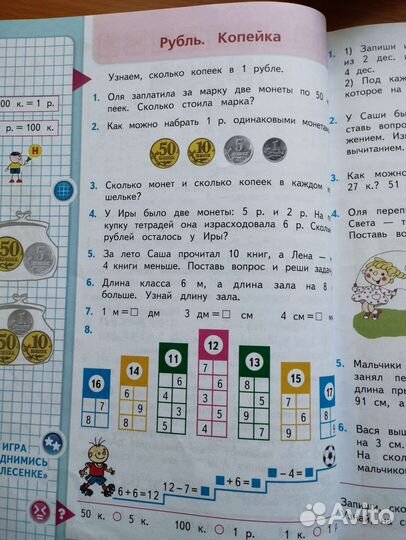 Рубль. Копейка
Узнаем, сколько копеек в 1 рубле.
1. Оля заплатила за марку две монеты по 50
пеек. Сколько стоила марка?
2. Как можно набрать 1 р. одинаковыми
50 10 5 1
3. Сколько монет и сколько копеек в каждом
шельке?
4. У Иры было две монеты: 5 р. и 2 р. На
купку тетрадей она израсходовала 6 р.
рублей осталось у Иры?
5. За лето Саша прочитал 10 книг, а Лена —
4 книги меньше. Поставь вопрос и реши
6. Длина класса 6 м, а длина зала на 8
больше. Узнай длину зала.
7. 1 м = □ дм 3 дм = □ см 4 см = □
8.
16
9
8
14
6
9
8
11
6
4
3
5
12
7
3
6
4
8
13
6
8
5
9
7
15
7
6
8
17
9
8
6 + 6 = 12 12 – 7 = ■ ■ + 6 = ■ ■ – 4 = ■
50 к. ○ 5 к. 100 к. ○ 1 р. 1 к. ○ 1
00 к. = 1 р.
р. = 100 к.
Н
50 5
1
50 10
ИГРА
ДНИМИСЬ
ЛЕСЕНКЕ»
?
1. 1) Запиши
из 2 дес.
4 дес.
2) Под
которое на
2. У Саши
ставь вопрос
жением.
вычитанием.
3. Как можно
27 к.? 51
4. Оля
Света —
Поставь
5. Мальчики
занял
длина
91 см, а
6. Вася
на 3 см.
На
мальчиков
Запиши
Avito